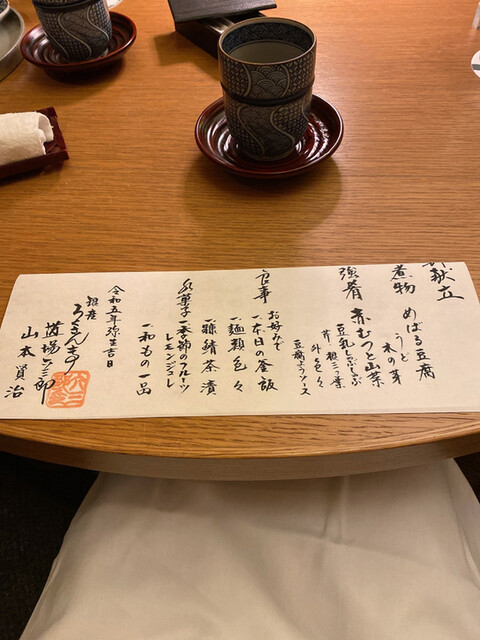 御献立
煮物 めばる豆腐
うど
木の芽
強肴 赤むつと山菜
豆乳しゃぶしゃぶ
芹 根三つ葉
外色々
豆腐ようソース
食事 お好みで
一、本日の釜飯
一、麺類色々
一、鯖茶漬
水菓子 一、季節のフルーツ
レモンジュレ
一、和もの一品
令和五年弥生吉日
銀座
ろくさん亭
道場六三郎
山本賢治